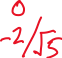 0
-2/√5